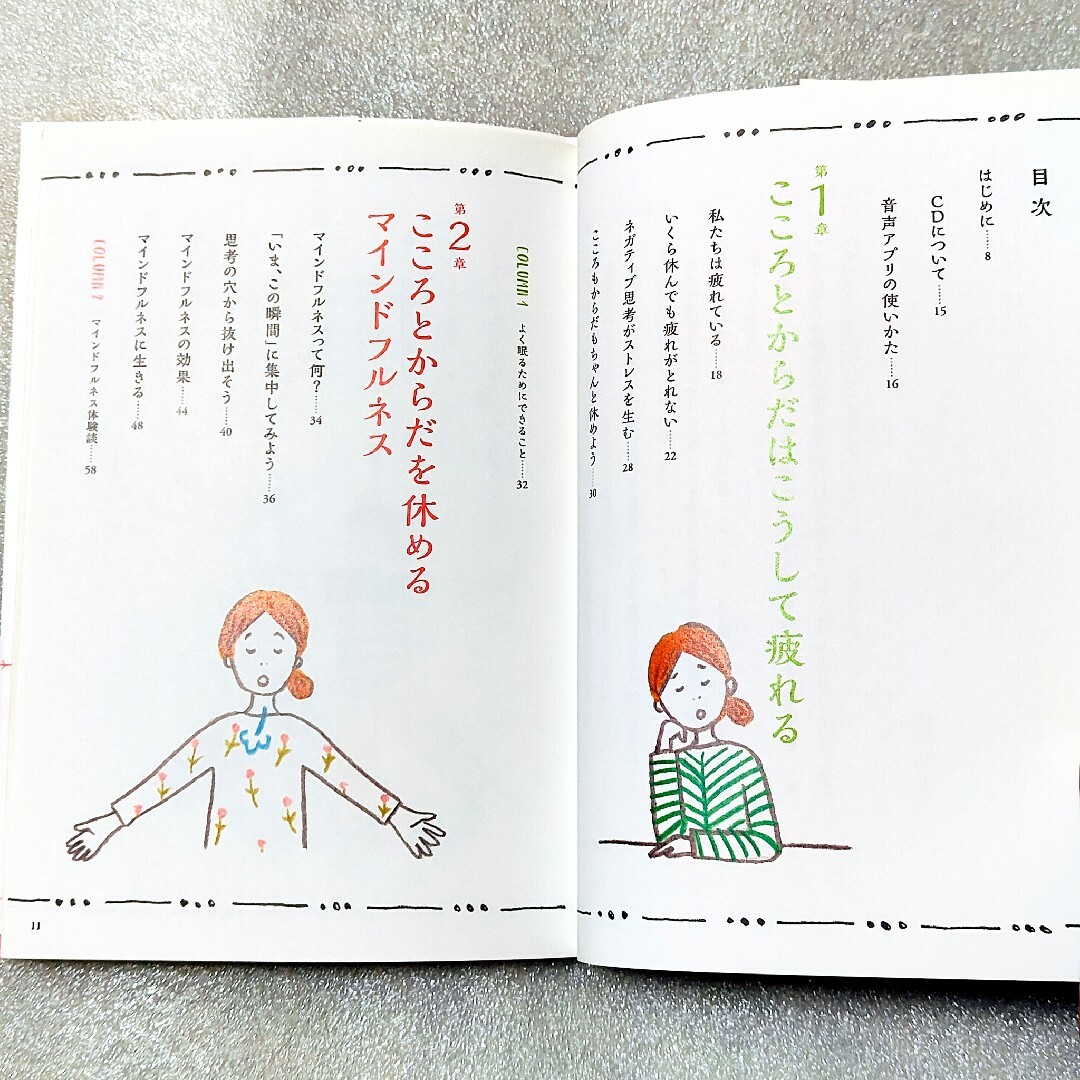 目次
はじめに……8
CDについて……15
音声アプリの使いかた……16
第1章
こころとからだはこうして疲れる
私たちは疲れている……18
いくら休んでも疲れがとれない……22
ネガティブ思考がストレスを生む……28
こころもからだもちゃんと休めよう……30
COLUMN 1 よく眠るためにできること……32
第2章
こころとからだを休める
マインドフルネス
マインドフルネスって何?……34
「いま、この瞬間」に集中してみよう……36
思考の穴から抜け出そう……40
マインドフルネスの効果……44
マインドフルネスに生きる……48
COLUMN 2 マインドフルネス体験談……58
11